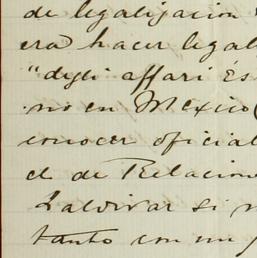 de legalizacion
era hacer legali
"degli affari És
no en Mexico
conocer oficial
el de Relacione
Zaldivar si n
tanto con un